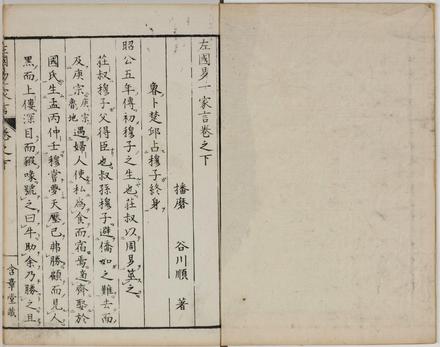 左國易一家言卷之下
播磨 谷川順 著
魯卜楚邱占穆子終身
昭公五年傳初穆子之生也莊叔以周易筮之
莊叔穆子父得臣也叔孫穆子避僑如之難去而
及庚宗庚宗魯地遇婦人使私為食而宿焉適齊娶於
國氏生孟丙仲壬穆嘗夢天壓己弗勝顧而見人
黑而上僂深目而豭喙號之曰牛助余乃勝之且
左國易一家言 卷之下
含章堂藏